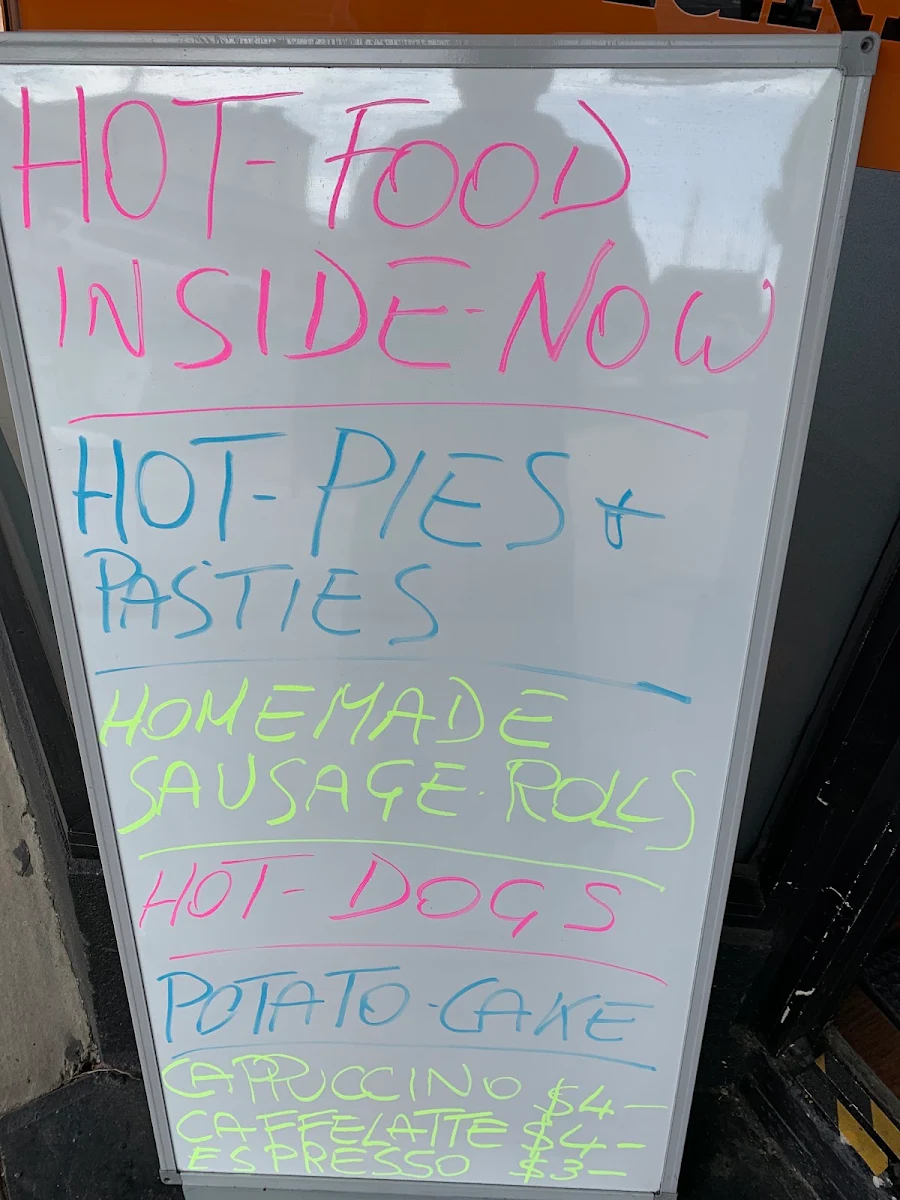 HOT-FOOD
INSIDE-NOW
HOT-PIES &
PASTIES
HOMEMADE
SAUSAGE-ROLLS
HOT-DOGS
POTATO-CAKE
CAPPUCCINO $4-
CAFFELATTE $4-
ESPRESSO $3-